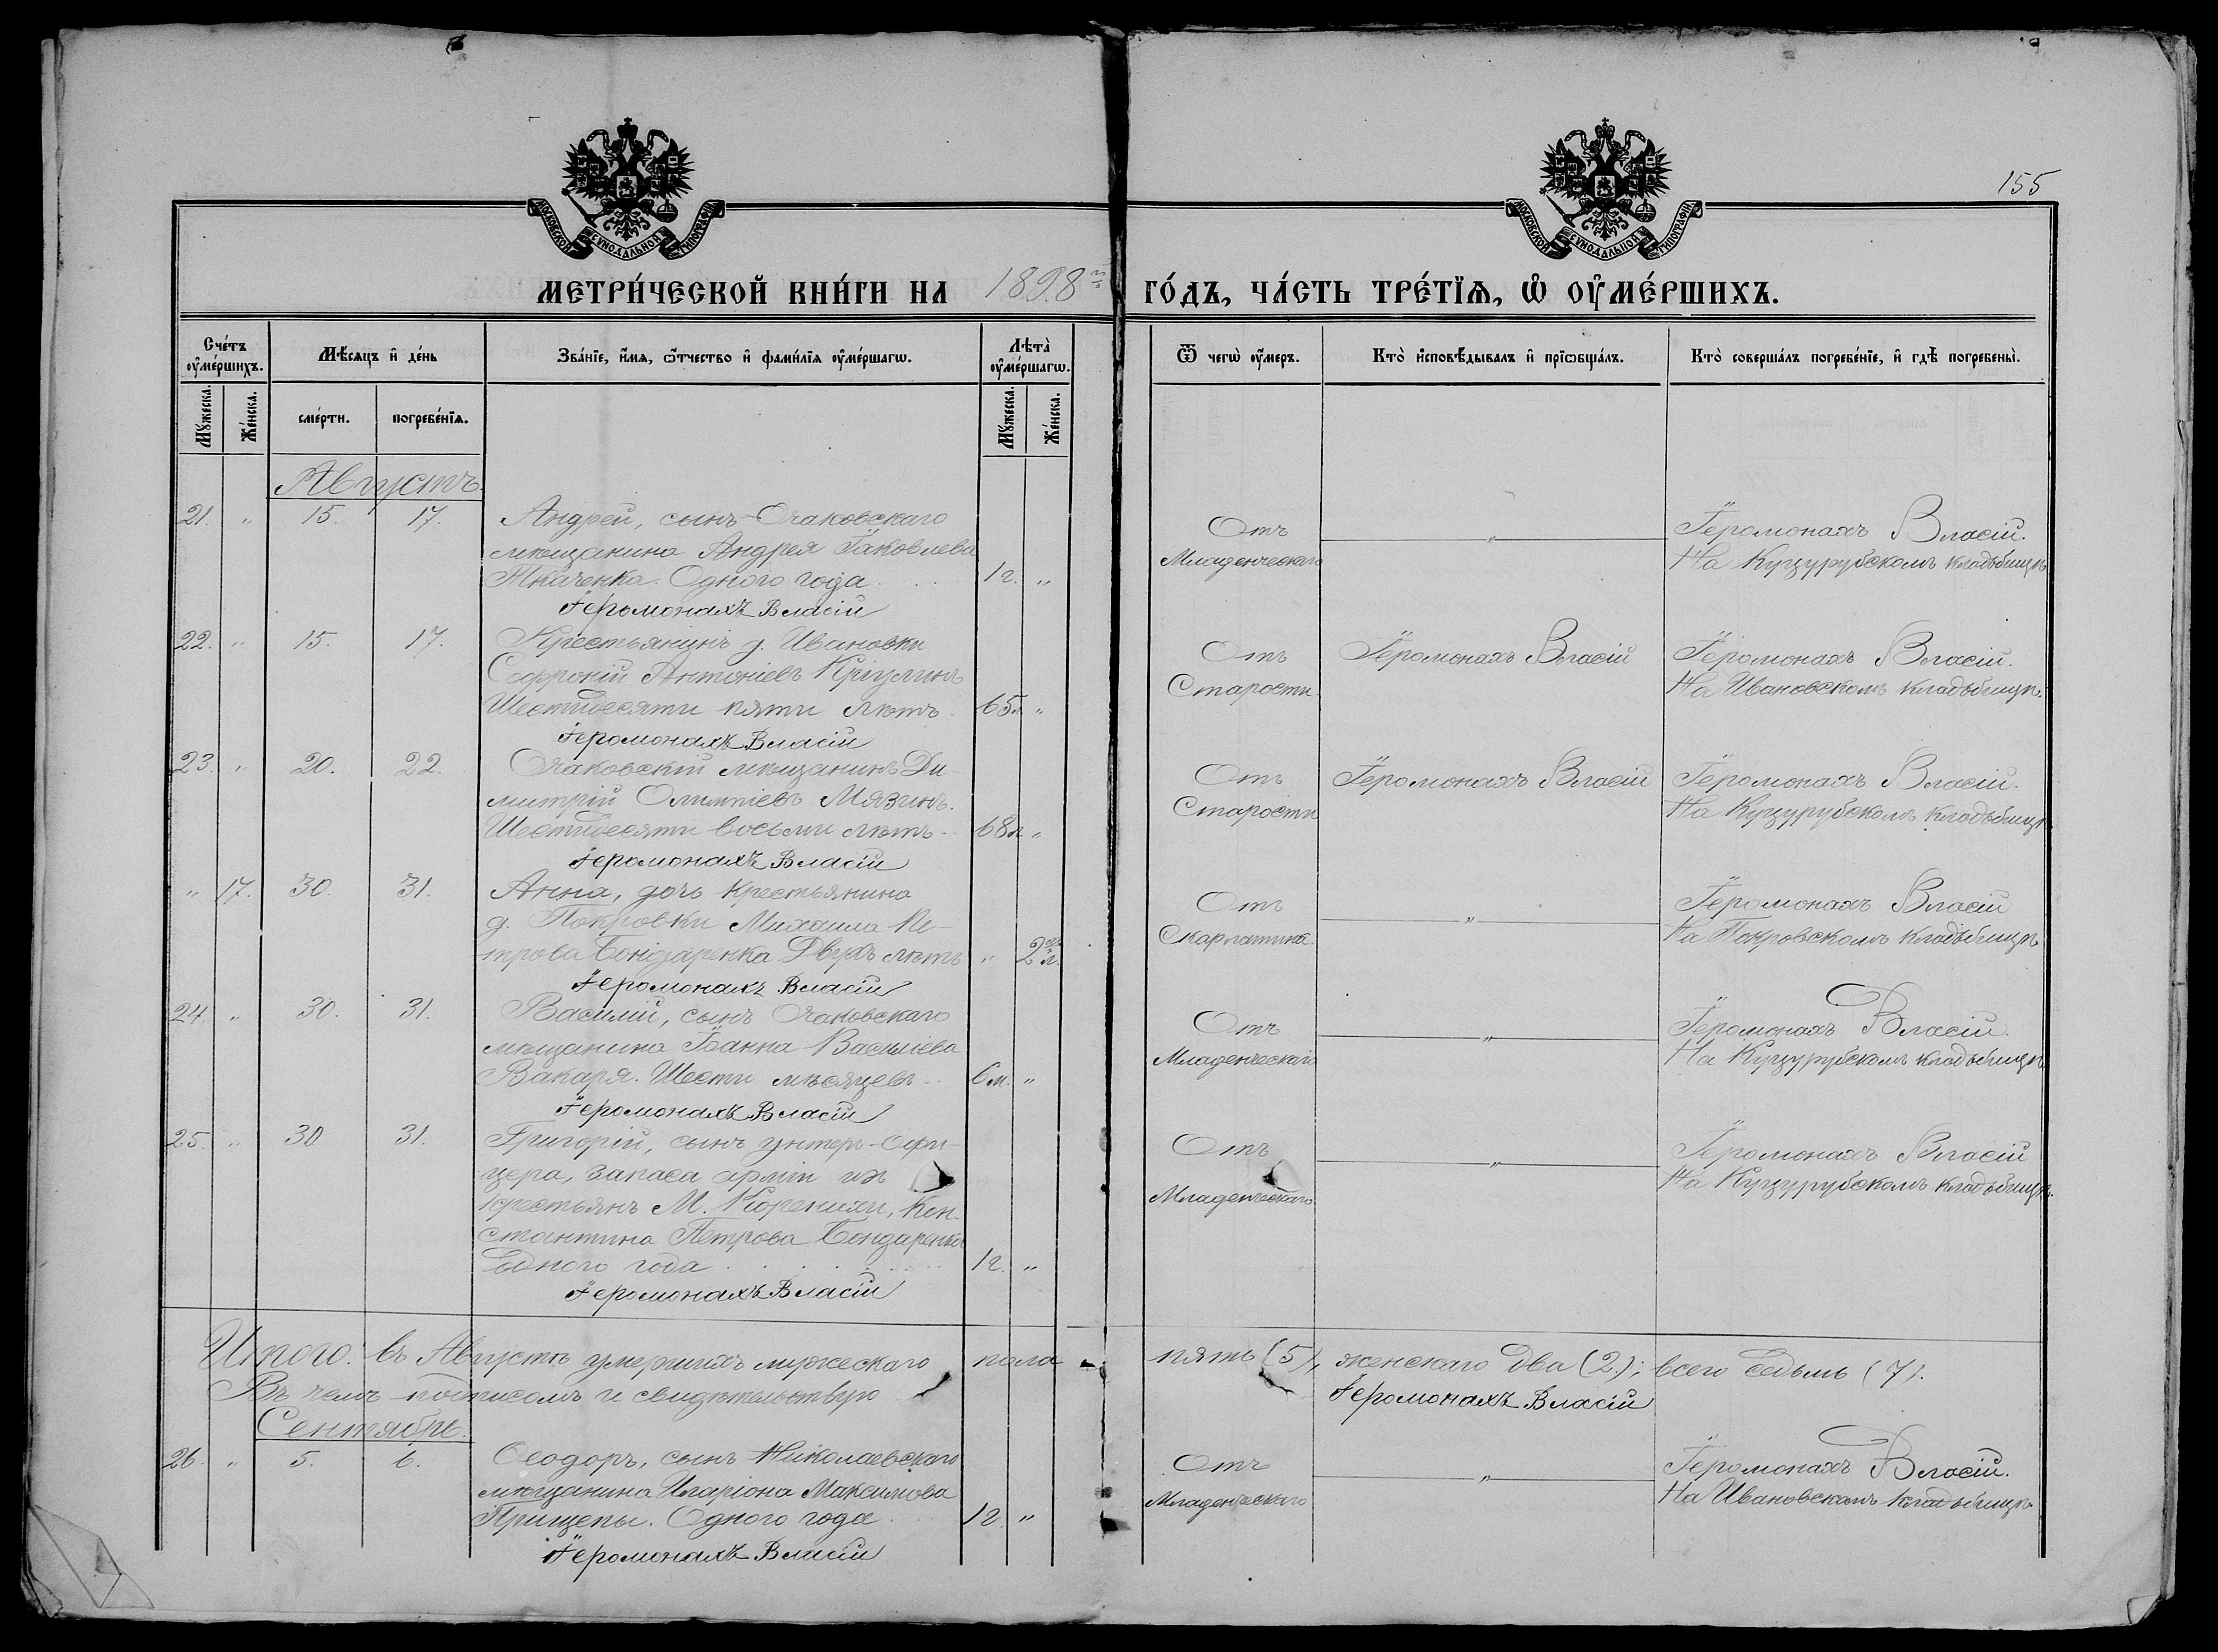 155
МОСКОВСКОЙ СѴНОДАЛЬНОЙ ТИПОГРАФІИ
МОСКОВСКОЙ СѴНОДАЛЬНОЙ ТИПОГРАФІИ
МЕТРИ́ЧЕСКОЙ КНИ́ГИ НА 1898й ГО́ДЪ, ЧА́СТЬ ТРЕ́ТЇѦ, Ѡ҆ ОУ҆МЕ́РШИХЪ.
Сче́тъ оу҆ме́ршихъ.
Мꙋ́жеска.
Же́нска.
Мѣ́сяцъ и҆ де́нь
сме́рти.
погребе́нїѧ.
Зва́нїе, и҆́мѧ, ѻ҆́тчество и҆ фами́лїѧ оу҆ме́ршагѡ.
Лѣ̑та̀ оу҆ме́ршагѡ.
Мꙋ́жеска.
Же́нска.
Ѿ чегѡ̀ оу҆́меръ.
Кто̀ и҆сповѣ́дывалъ и҆ прїѡбща́лъ.
Кто̀ соверша́лъ погребе́нїе, и҆ гдѣ̀ погребены̀.
Августъ.
21. " 15. 17. Андрей, сынъ Очаковскаго
мѣщанина Андрея Іаковлева
Ткаченка. Одного года . . . 1г. "
Іеромонахъ Власій
Отъ
Младенческаго
"
Іеромонахъ Власій.
На Куцурубскомъ кладбищѣ
22. " 15. 17. Крестьянинъ д. Ивановки
Софроній Антоніевъ
Шестидесяти пяти лѣтъ 65л "
Іеромонахъ Власій
Отъ
Старости.
Іеромонахъ Власій
Іеромонахъ Власій.
На Ивановскомъ кладбищѣ.
23. " 20. 22. Очаковскій мѣщанинъ Ди-
митрій Олимпіевъ Мязинъ.
Шестидесяти восьми лѣтъ 68л "
Іеромонахъ Власій
Отъ
Старости
Іеромонахъ Власій
Іеромонахъ Власій.
На Куцурубскомъ кладбищѣ
" 17. 30. 31. Анна, дочь крестьянина
д. Покровки Михаила Пе-
трова Бондаренка Двухъ лѣтъ " 2л.
Іеромонахъ Власій
Отъ
Скарлатина.
"
Іеромонахъ Власій
На Покровскомъ кладбищѣ
24. " 30. 31. Василій, сынъ Очаковскаго
мѣщанина Іоанна Василіева
Вакаря. Шести мѣсяцевъ 6м. "
Іеромонахъ Власій
Отъ
Младенческаго
"
Іеромонахъ Власій.
На Куцурубскомъ кладбищѣ
25. " 30 31. Григорій, сынъ унтеръ-офи-
цера, запаса арміи изъ
крестьянъ М. Коренихи, Кон-
стантина Петрова Бондаренка
Одного года . . . 1г. "
Іеромонахъ Власій
Отъ
Младенческаго
"
Іеромонахъ Власій
На Куцурубскомъ кладбищѣ.
Итого: въ Августѣ умершихъ мужескаго пола пять (5), женскаго два (2); всего седьмь (7).
Въ чемъ подписомъ и свидѣтельствую
Іеромонахъ Власій
Сентябрь.
26. " 5. 6. Ѳеодоръ, сынъ Николаевскаго
мѣщанина Иларіона Максимова
Прищепы. Одного года 1г. "
Іеромонахъ Власій
Отъ
Младенческаго
"
Іеромонахъ Власій.
На Ивановскомъ кладбищѣ